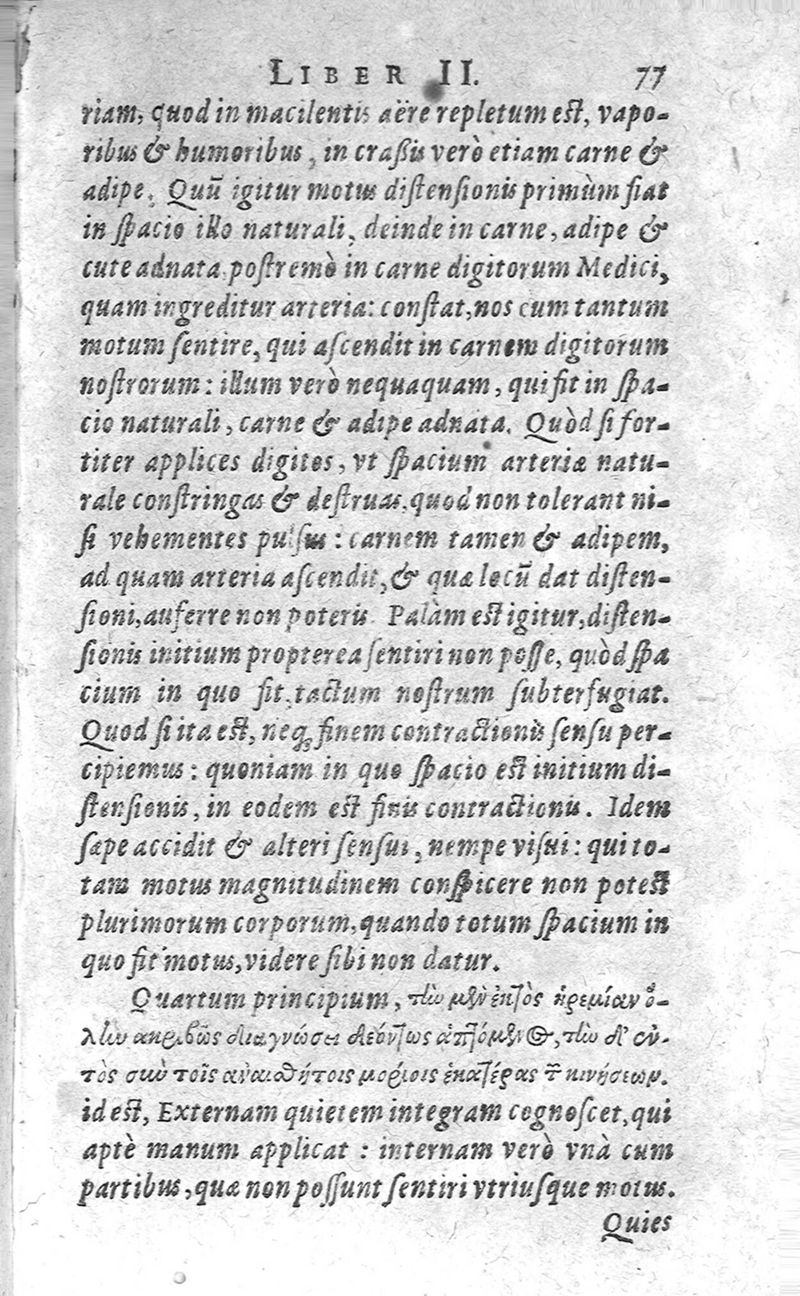 LIBER II. 77
riam, quod in macilentis aëre repletum est, vapo-
ribus & humoribus, in craßis verò etiam carne &
adipe. Quũ igitur motus distensionis primùm fiat
in spacio illo naturali, deinde in carne, adipe &
cute adnata, postremò in carne digitorum Medici,
quam ingreditur arteria: constat, nos eum tantum
motum sentire, qui ascendit in carnem digitorum
nostrorum: illum verò nequaquam, qui fit in spa-
cio naturali, carne & adipe adnata. Quòd si for-
titer applices digitos, vt spacium arteriæ natu-
rale constringas & destruas, quod non tolerant ni-
si vehementes pulsus: carnem tamen & adipem,
ad quam arteria ascendit, & quæ locũ dat disten-
sioni, auferre non poteris. Palàm est igitur, disten-
sionis initium propterea sentiri non posse, quòd spa
cium in quo fit, tactum nostrum subterfugiat.
Quod si ita est, neq; finem contractionis sensu per-
cipiemus: quoniam in quo spacio est initium di-
stensionis, in eodem est finis contractionis. Idem
sæpe accidit & alteri sensui, nempe visui: qui to-
tam motus magnitudinem conspicere non potest
plurimorum corporum, quando totum spacium in
quo fit motus, videre sibi non datur.
Quartum principium, τὴν μὲν ἐκτὸς ἠρεμίαν ὅ-
λην ἀκριβῶς διαγνώσει δεόντως ἁπτόμενος, τὴν δ' ἐν-
τὸς σὺν τοῖς ἀναισθήτοις μορίοις ἑκατέρας τῶν κινήσεων.
id est, Externam quietem integram cognoscet, qui
aptè manum applicat: internam verò vnà cum
partibus, quæ non possunt sentiri vtriusque motus.
Quies